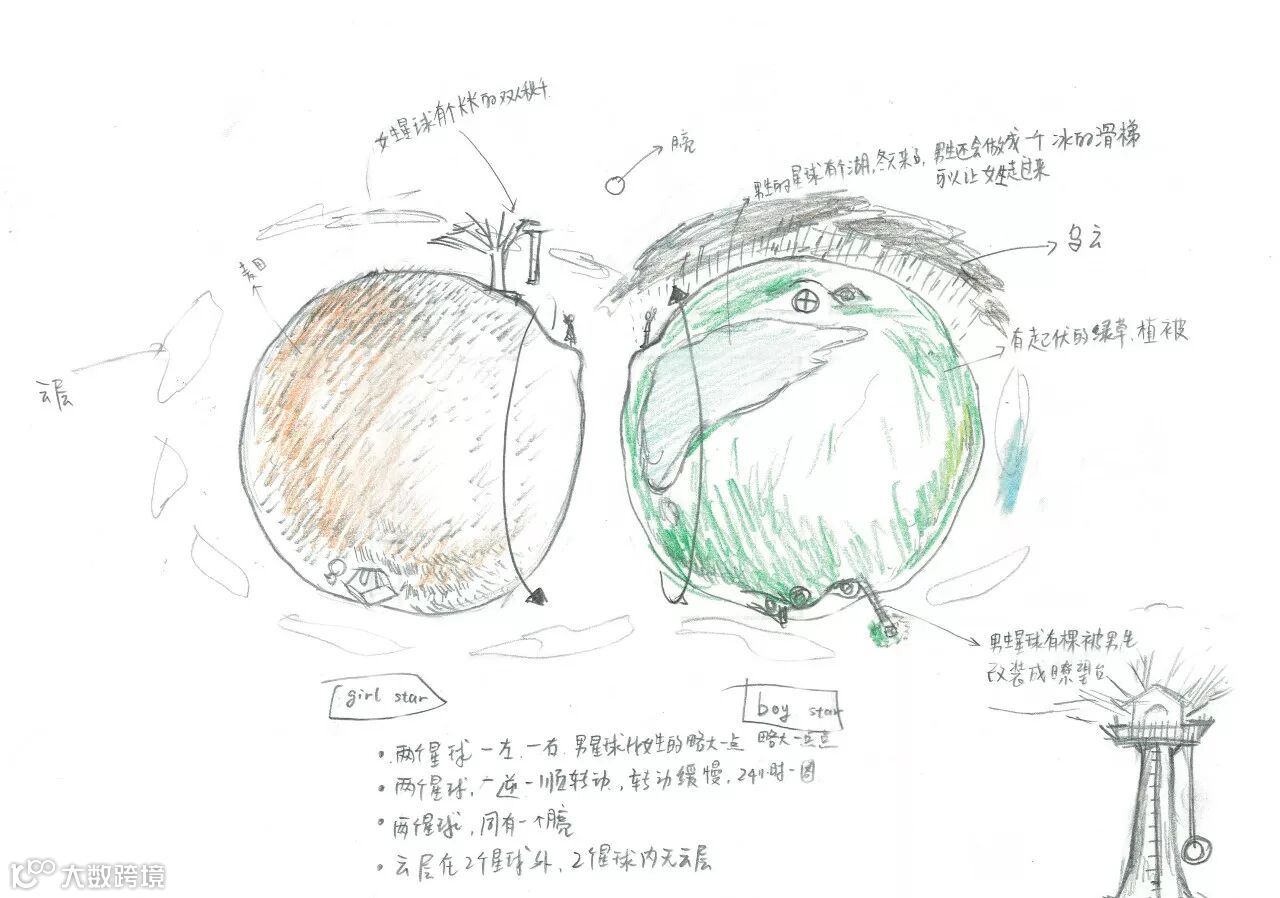 女生星球有个长长的双人秋千
月亮
男生的星球有个湖,冬天来了,男生还会做成一个冰的滑梯
可以让女生走过来
乌云
麦田
云层
有起伏的绿草、植被
男生星球有棵被男生
改装成瞭望台
girl star
boy star
• 两个星球一左、一右、男星球比女生的略大一点 略大一点点
• 两个星球,一逆一顺转动,转动缓慢,24小时一圈
• 两个星球,同有一个月亮
• 云层在2个星球外,2个星球内无云层
大数跨境